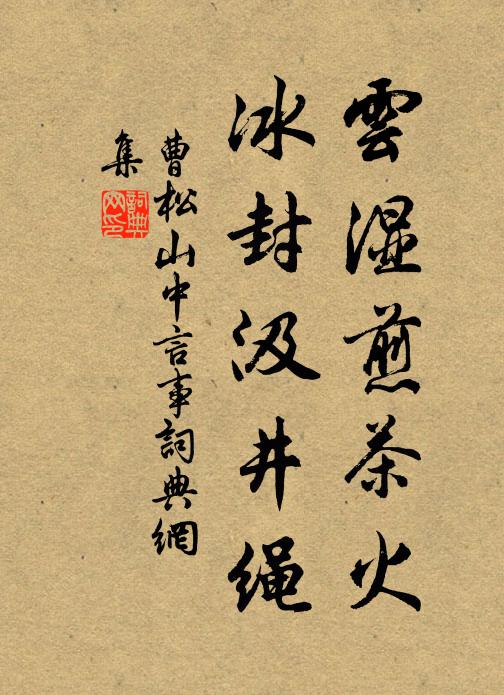 雲湿煎茶火
冰封汲井绳
曹松山中言事詞典網
集
詞典网印